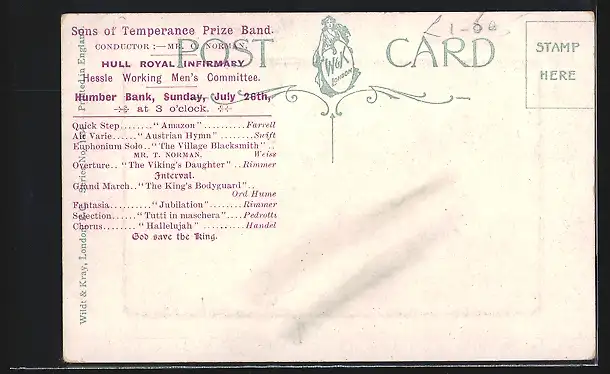 Sons of Temperance Prize Band.
CONDUCTOR:—MR. C. NORMAN.
HULL ROYAL INFIRMARY
Hessle Working Men's Committee.
Humber Bank, Sunday, July 26th,
at 3 o'clock.
Quick Step........"Amazon"..........Farrell
Air Varie......"Austrian Hymn"........Swift
Euphonium Solo.."The Village Blacksmith"..
MR. T. NORMAN. Weiss
Overture.."The Viking's Daughter"..Rimmer
Interval.
Grand March.."The King's Bodyguard"..
Ord Hume
Fantasia.........."Jubilation"........Rimmer
Selection......"Tutti in maschera"....Pedrotti
Chorus........"Hallelujah"..........Handel
God save the King.
POST CARD
W&K
LONDON
STAMP
HERE
1-60
Wildt & Kray, London, Series No. Printed in England